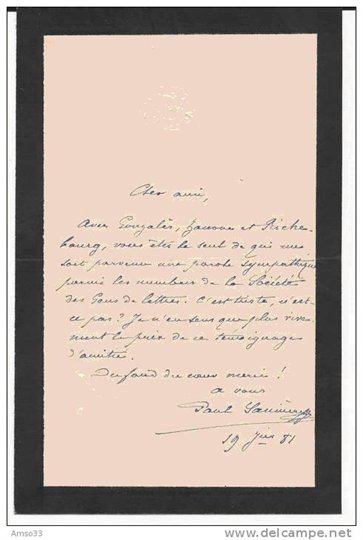 Cher ami,
Avec Gonzalès, et Riche-
bourg, vous êtes le seul de qui me
soit parvenu une parole sympathique
parmi les membres de la Société
des Gens de lettres. C'est triste, n'est-
ce pas? Je n'en sens que plus vive-
ment le prix de ce témoignage
d'amitié.
Du fond du cœur merci!
à vous
Paul
19 81
Amso33
delcampe.net